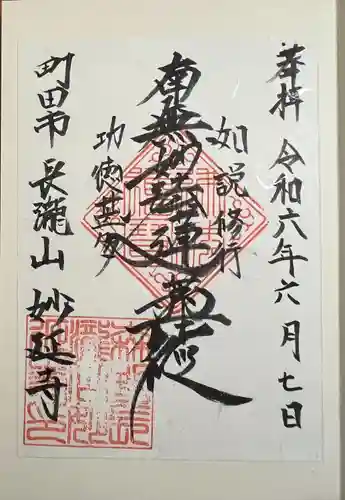 奉拝 令和六年六月七日
如説修行
南無妙法蓮華経
功徳甚多
町田市 長瀧山 妙延寺